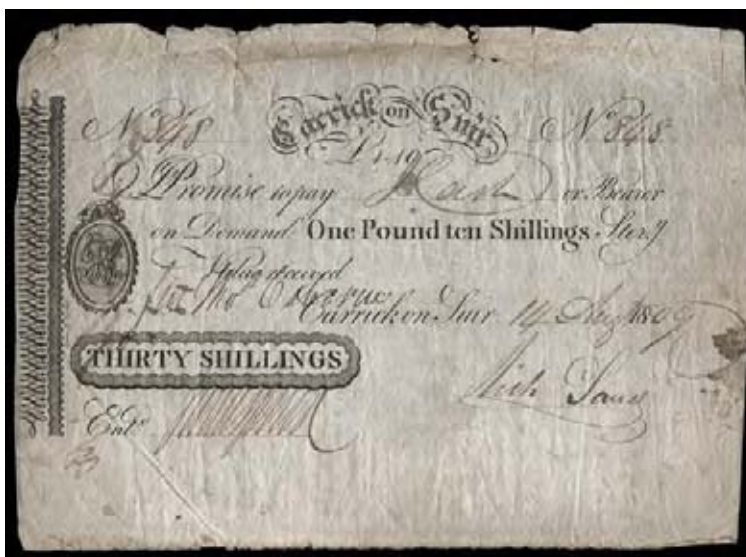 Carrick on Suir
No 848 No 848
£1..10
I Promise to pay Cash or Bearer
on Demand One Pound ten Shillings Ster.g
Value received
Carrick on Suir 14 Aug 1809
THIRTY SHILLINGS
Mich Sausse
Ent.d